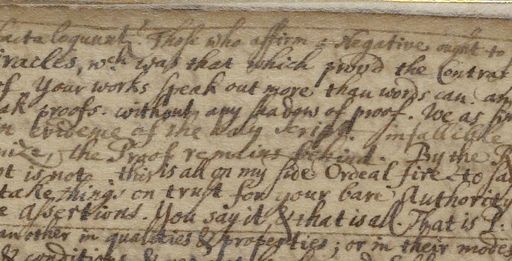 facta loquunt.r Those who affirm a Negative ought to
iracles, wch was that which prov'd the Contra
of your works speak out more than words can. an
ak proofs. without any shadow of proof. We as
evidence of the Holy Script infallible
the Proof remains behind. By the R
is not this is all on my side Ordeal fire to
take things on trust for your bare Authority
e assertions. You say it & that is all. That is
another in qualities & properties; or in their modes
& conditions &